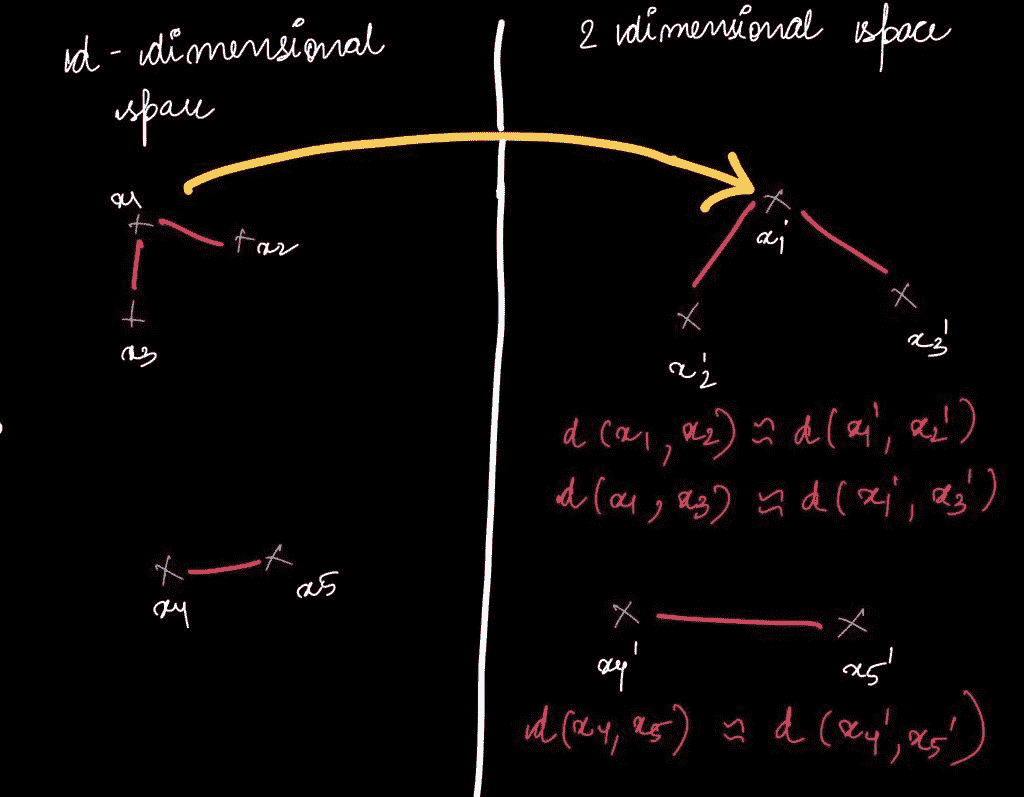 d - dimensional
space
x1
x2
x3
x4
x5
2 dimensional space
x1'
x2'
x3'
d(x1, x2) ≈ d(x1', x2')
d(x1, x3) ≈ d(x1', x3')
x4'
x5'
d(x4, x5) ≈ d(x4', x5')